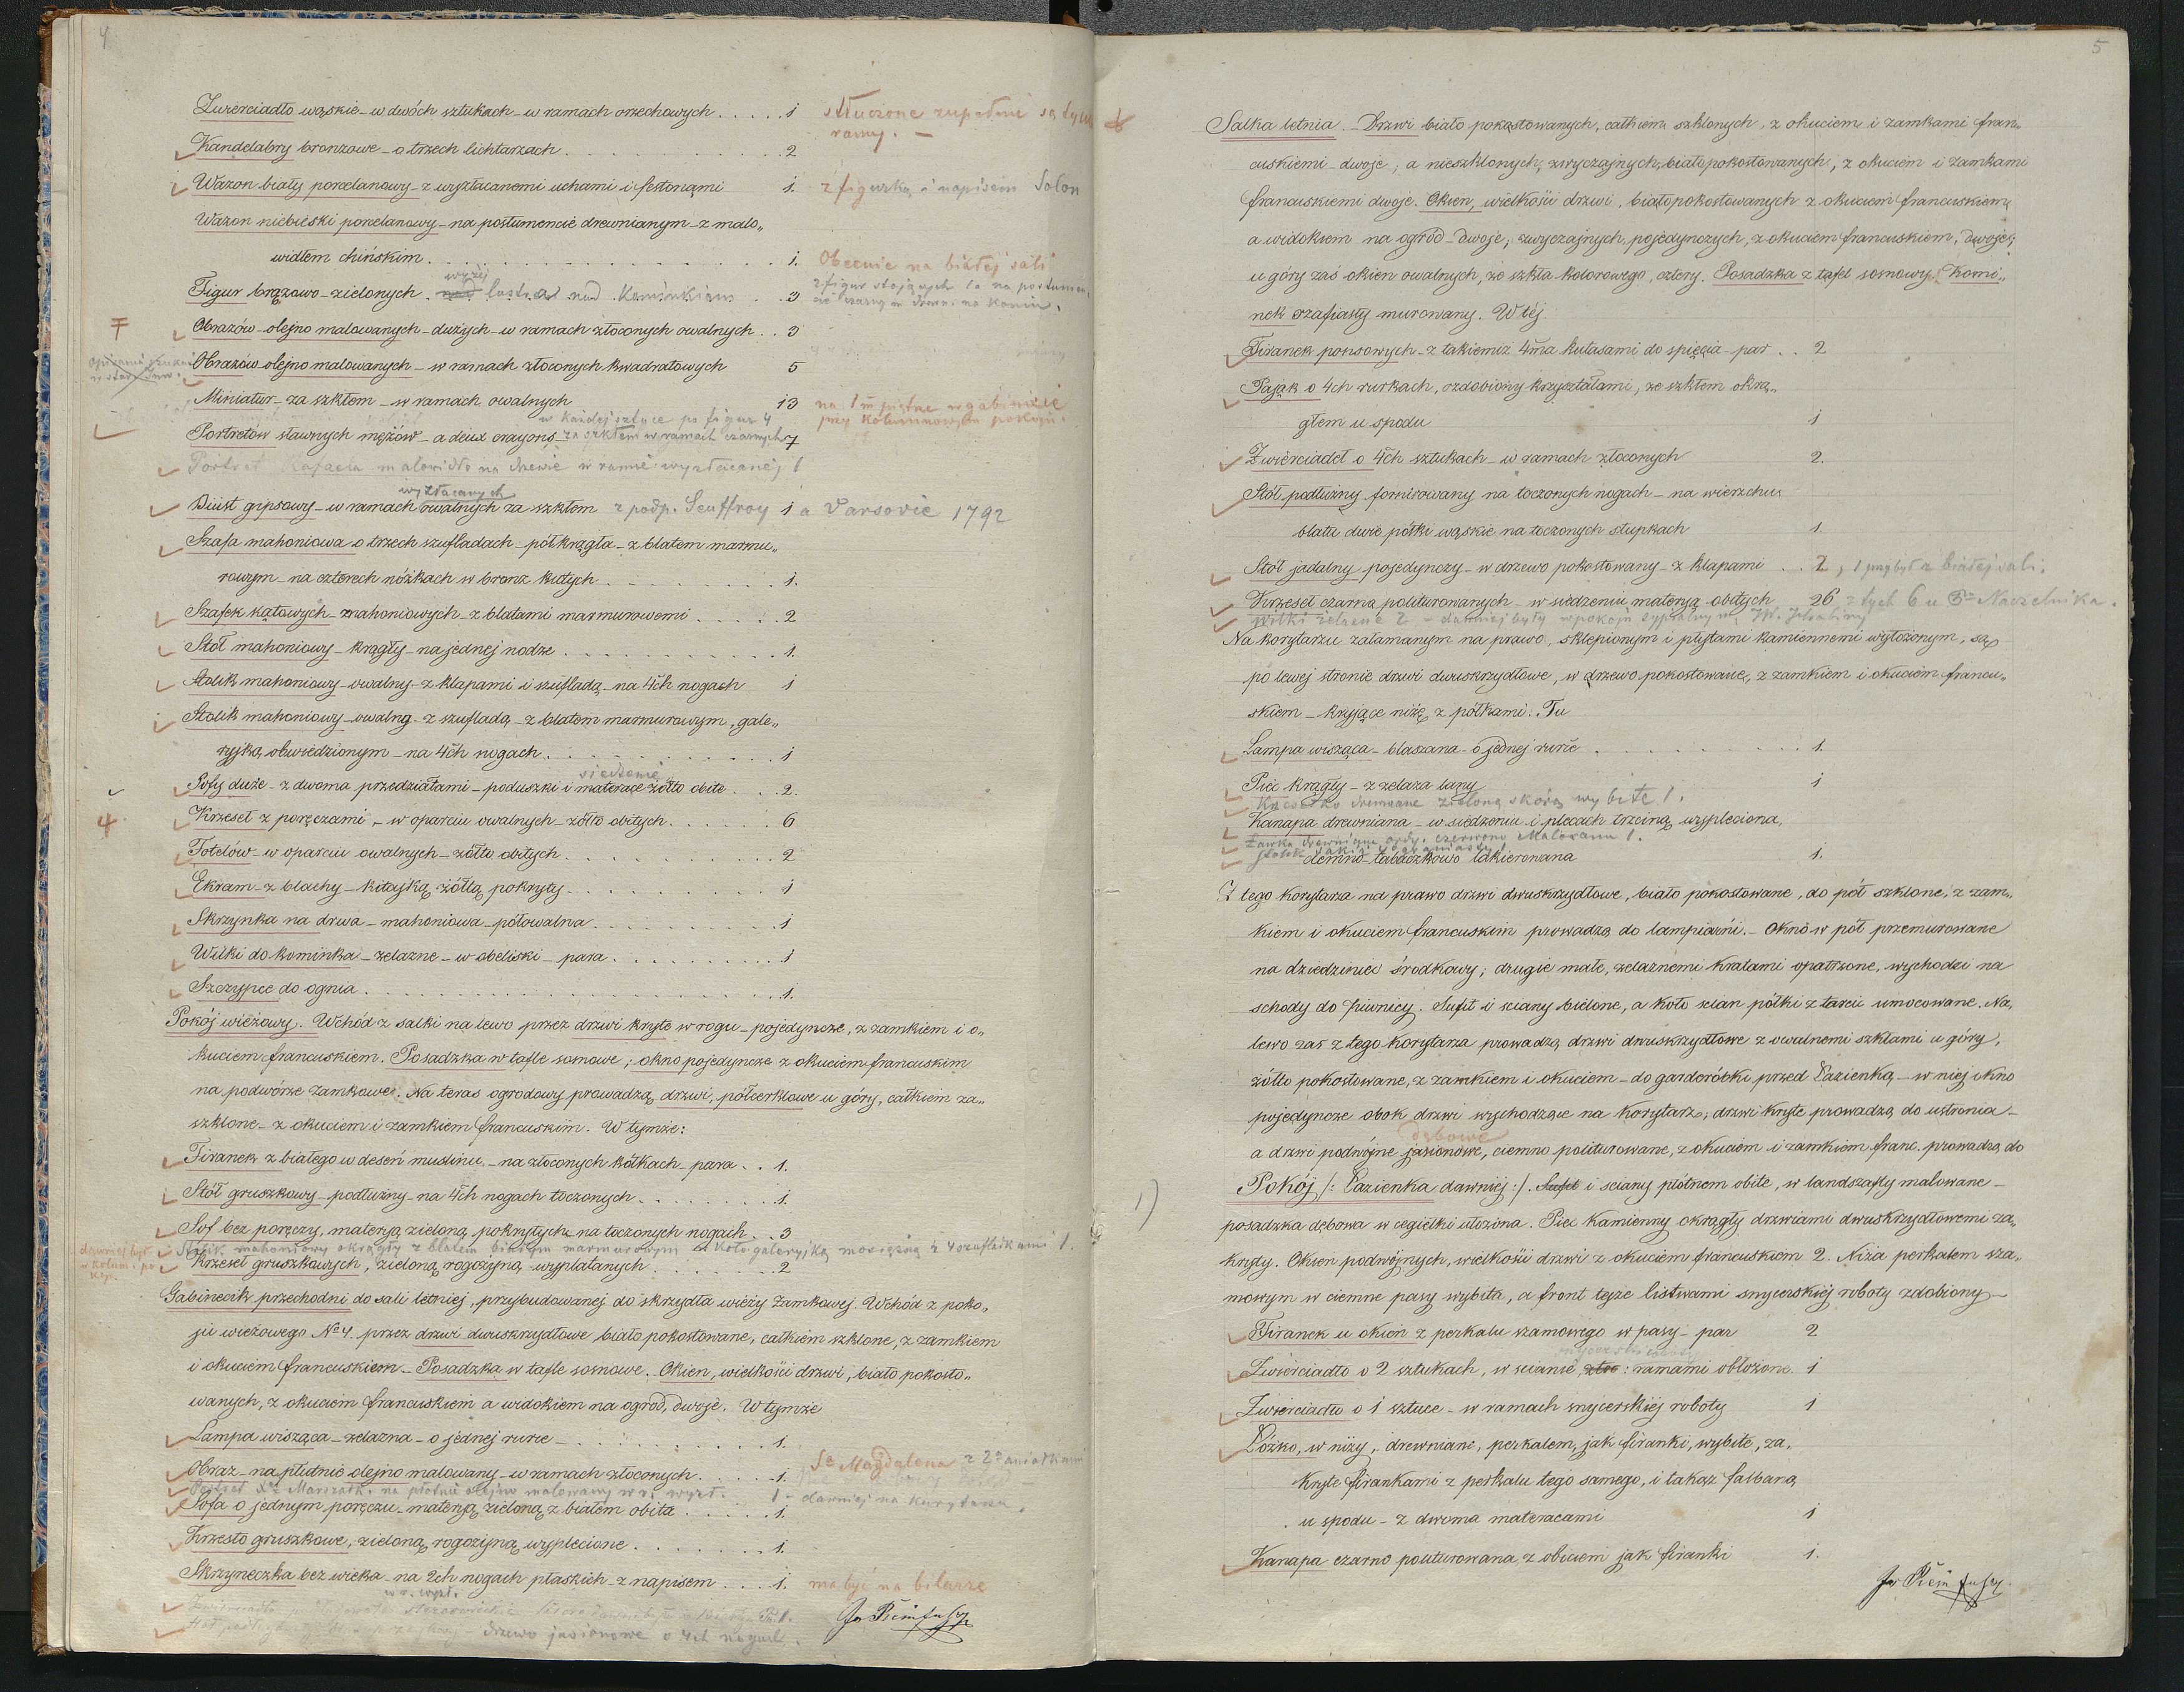 4
Zwierciadło wąskie - w dwóch sztukach - w ramach orzechowych . . . . . 1 stłuczone zupełnie są tylko
ramy. -
Kandelabry bronzowe - o trzech lichtarzach . . . 2
Wazon biały porcelanowy - z wyzłacanemi uchami i festonami 1. z figurką i napisem Solon
Wazon niebieski porcelanowy - na postumencie drewnianym - z malo„
widłem chińskim . . . 1. Obecnie na białej sali
wyżej
Figur brązowo-zielonych . lustra nad Kominkiem . . 3 2 figur stojących 1a na postumen
cie czarnym drewn. na komin.
Obrazów - olejno malowanych - dużych - w ramach złoconych owalnych . . 3
Obrazów olejno malowanych - w ramach złoconych kwadratowych 5
Miniatur - za szkłem - w ramach owalnych 13 na 1m piętrze w gabinecie
przy kolumnowym pokoju.
w każdej sztuce po figur 4
Portretów sławnych mężów - a deux crayons - za szkłem w ramach czarnych 7
Portret Rafaela malowidło na drzewie w ramie wyzłacanej 1
wyzłacanych
Biust gipsowy - w ramach owalnych za szkłem z podp. Seuffroy 1 a Varsovie 1792
Szafa mahoniowa o trzech szufladach - półkrągła - z blatem marmu„
rowym - na czterech nóżkach w bronz kutych . . . 1.
Szafek kątowych - mahoniowych - z blatami marmurowemi . . . . . 2
Stół mahoniowy - krągły - na jednej nodze . . . 1.
Stolik mahoniowy - owalny - z klapami i szufladą - na 4ch nogach 1
Stolik mahoniowy - owalny - z szufladą - z blatem marmurowym, gale„
ryjką obwiedzionym - na 4ch nogach . . . 1
siedzenie
Sofy duże - z dwoma przedziałami - poduszki i materace żółto obite . . . 2.
4. Krzeseł z poręczami - w oparciu owalnych - żółto obitych . . . 6
Fotelów - w oparciu owalnych - żółto obitych . . . 2
Ekran - z blachy - kitajką żółtą pokryty . . . 1
Skrzynka na drwa - mahoniowa - półowalna . . . 1
Wilki do kominka - żelazne - w obeliski - para . . . 1
Szczypce do ognia . . . 1.
Pokój wieżowy. Wchód z salki na lewo przez drzwi kryte w rogu - pojedyncze, z zamkiem i o„
kuciem francuskiem. Posadzka w tafle sosnowe; okno pojedyncze z okuciem francuskim
na podwórze zamkowe. Na teras ogrodowy prowadzą drzwi, półcerklowe u góry, całkiem za„
szklone - z okuciem i zamkiem francuskim. W tymże:
Firanek z białego w deseń muślinu - na złoconych kółkach - para . . 1.
Stół gruszkowy - podłużny - na 4ch nogach toczonych . . . 1.
Sof bez poręczy, materyą zieloną pokrytych, na toczonych nogach . . 3
dawniej był Stolik mahoniowy okrągły z blatem białym marmurowym w koło galeryjką mosiężną z 4 szufladkami 1.
w kolum. po
kój.
Krzeseł gruszkowych, zieloną rogożyną wyplatanych . . . 2
Gabinecik przechodni do sali letniej, przybudowanej do skrzydła wieży zamkowej. Wchód z poko„
ju wieżowego No 4. przez drzwi dwuskrzydłowe biało pokostowane, całkiem szklone, z zamkiem
i okuciem francuskiem. - Posadzka w tafle sosnowe. Okien, wielkości drzwi, biało pokosto„
wanych, z okuciem francuskiem a widokiem na ogród, dwoje. W tymże
Lampa wisząca - żelazna - o jednej rurze . . . 1.
Obraz - na płótnie olejno malowany - w ramach złoconych . . . 1. Sa Magdalena z 2a aniołkami
na płótnie olejno malowany w r. wyzł. 1 - dawniej na kurytarzu.
Sofa o jednym poręczu - materyą zieloną z białem obita . . . 1.
Krzesło gruszkowe, zieloną rogożyną wyplecione . . . 1.
Skrzyneczka bez wieka - na 2ch nogach płaskich - z napisem . . . 1. ma być na bilarze
w r. wyzł.
drzewo jasionowe o 4ch nogach.
5
Salka letnia. - Drzwi biało pokostowanych, całkiem szklonych, z okuciem i zamkami fran„
cuskiemi - dwoje; a nieszklonych, zwyczajnych, biało pokostowanych, z okuciem i zamkami
francuskiemi dwoje. Okien, wielkości drzwi, biało pokostowanych z okuciem francuskiem,
a widokiem na ogród - dwoje; zwyczajnych, pojedynczych, z okuciem francuskiem, dwoje;
u góry zaś okien owalnych, ze szkła kolorowego, cztery. Posadzka z tafel sosnowych. Komi„
nek szafiasty murowany. W tej
Firanek ponsowych - z takiemiż 4ma kutasami do spięcia - par . . 2
Pająk o 4ch rurkach, ozdobiony kryształami, ze szkłem okrą„
głem u spodu 1
Zwierciadeł o 4ch sztukach - w ramach złoconych 2.
Stół podłużny fornirowany na toczonych nogach - na wierzchu
blatu dwie półki wąskie na toczonych słupkach 1.
Stół jadalny pojedynczy - w drzewo pokostowany - z klapami . . 2, 1 przybył z białej sali.
Krzeseł czarno politurowanych - w siedzeniu materyą obitych 26 z tych 6 u Naczelnika.
Wilki żelazne 2 - dawniej były w pokoju sypialnym JW. Hrabiny
Na korytarzu załamanym na prawo, sklepionym i płytami kamiennemi wyłożonym, są
po lewej stronie drzwi dwuskrzydłowe, w drzewo pokostowane, z zamkiem i okuciem francu„
skiem - kryjące niżę z półkami. Tu
Lampa wisząca - blaszana - o jednej rurze . . . 1.
Piec krągły - z żelaza lany 1
drewniane zieloną skórą wybite 1.
Kanapa drewniana - w siedzeniu i plecach trzciną wypleciona,
Ławka drewniana czerwono malowana 1.
ciemno-tabaczkowo lakierowana 1.
Z tego korytarza na prawo drzwi dwuskrzydłowe, biało pokostowane, do pół szklone, z zam„
kiem i okuciem francuskim prowadzą do lampiarni. - Okno w pół przemurowane
na dziedziniec środkowy; drugie małe, żelaznemi kratami opatrzone, wychodzi na
schody do piwnicy. Sufit i ściany bielone, a koło ścian półki z tarcic umocowane. Na
lewo zaś z tego korytarza prowadzą drzwi dwuskrzydłowe z owalnemi szkłami u góry,
żółto pokostowane, z zamkiem i okuciem - do garderóbki przed Łazienką - w niej okno
pojedyncze obok drzwi wychodzące na korytarz; drzwi kryte prowadzą do ustronia -
dębowe
a drzwi podwójne jasionowe, ciemno politurowane, z okuciem i zamkiem franc. prowadzą do
1) Pokój /: Łazienka dawniej :/. Sufit i ściany płótnem obite, w landszafty malowane -
posadzka dębowa w cegiełki ułożona. Piec kamienny okrągły drzwiami dwuskrzydłowemi za„
kryty. Okien podwójnych, wielkości drzwi z okuciem francuskiem 2. Niża perkalem sza„
mowym w ciemne pasy wybita, a front tejże listwami snycerskiej roboty zdobiony -
Firanek u okien z perkalu szamowego w pasy - par 2
Zwierciadło o 2 sztukach, w ścianie, złoc: ramami obłożone. 1
Zwierciadło o 1 sztuce - w ramach snycerskiej roboty 1
Łóżko, w niży, - drewniane, perkalem, jak firanki, wybite, za„
kryte firankami z perkalu tego samego, i takąż falbaną
u spodu - z dwoma materacami 1
Kanapa czarno politurowana z obiciem jak firanki 1.